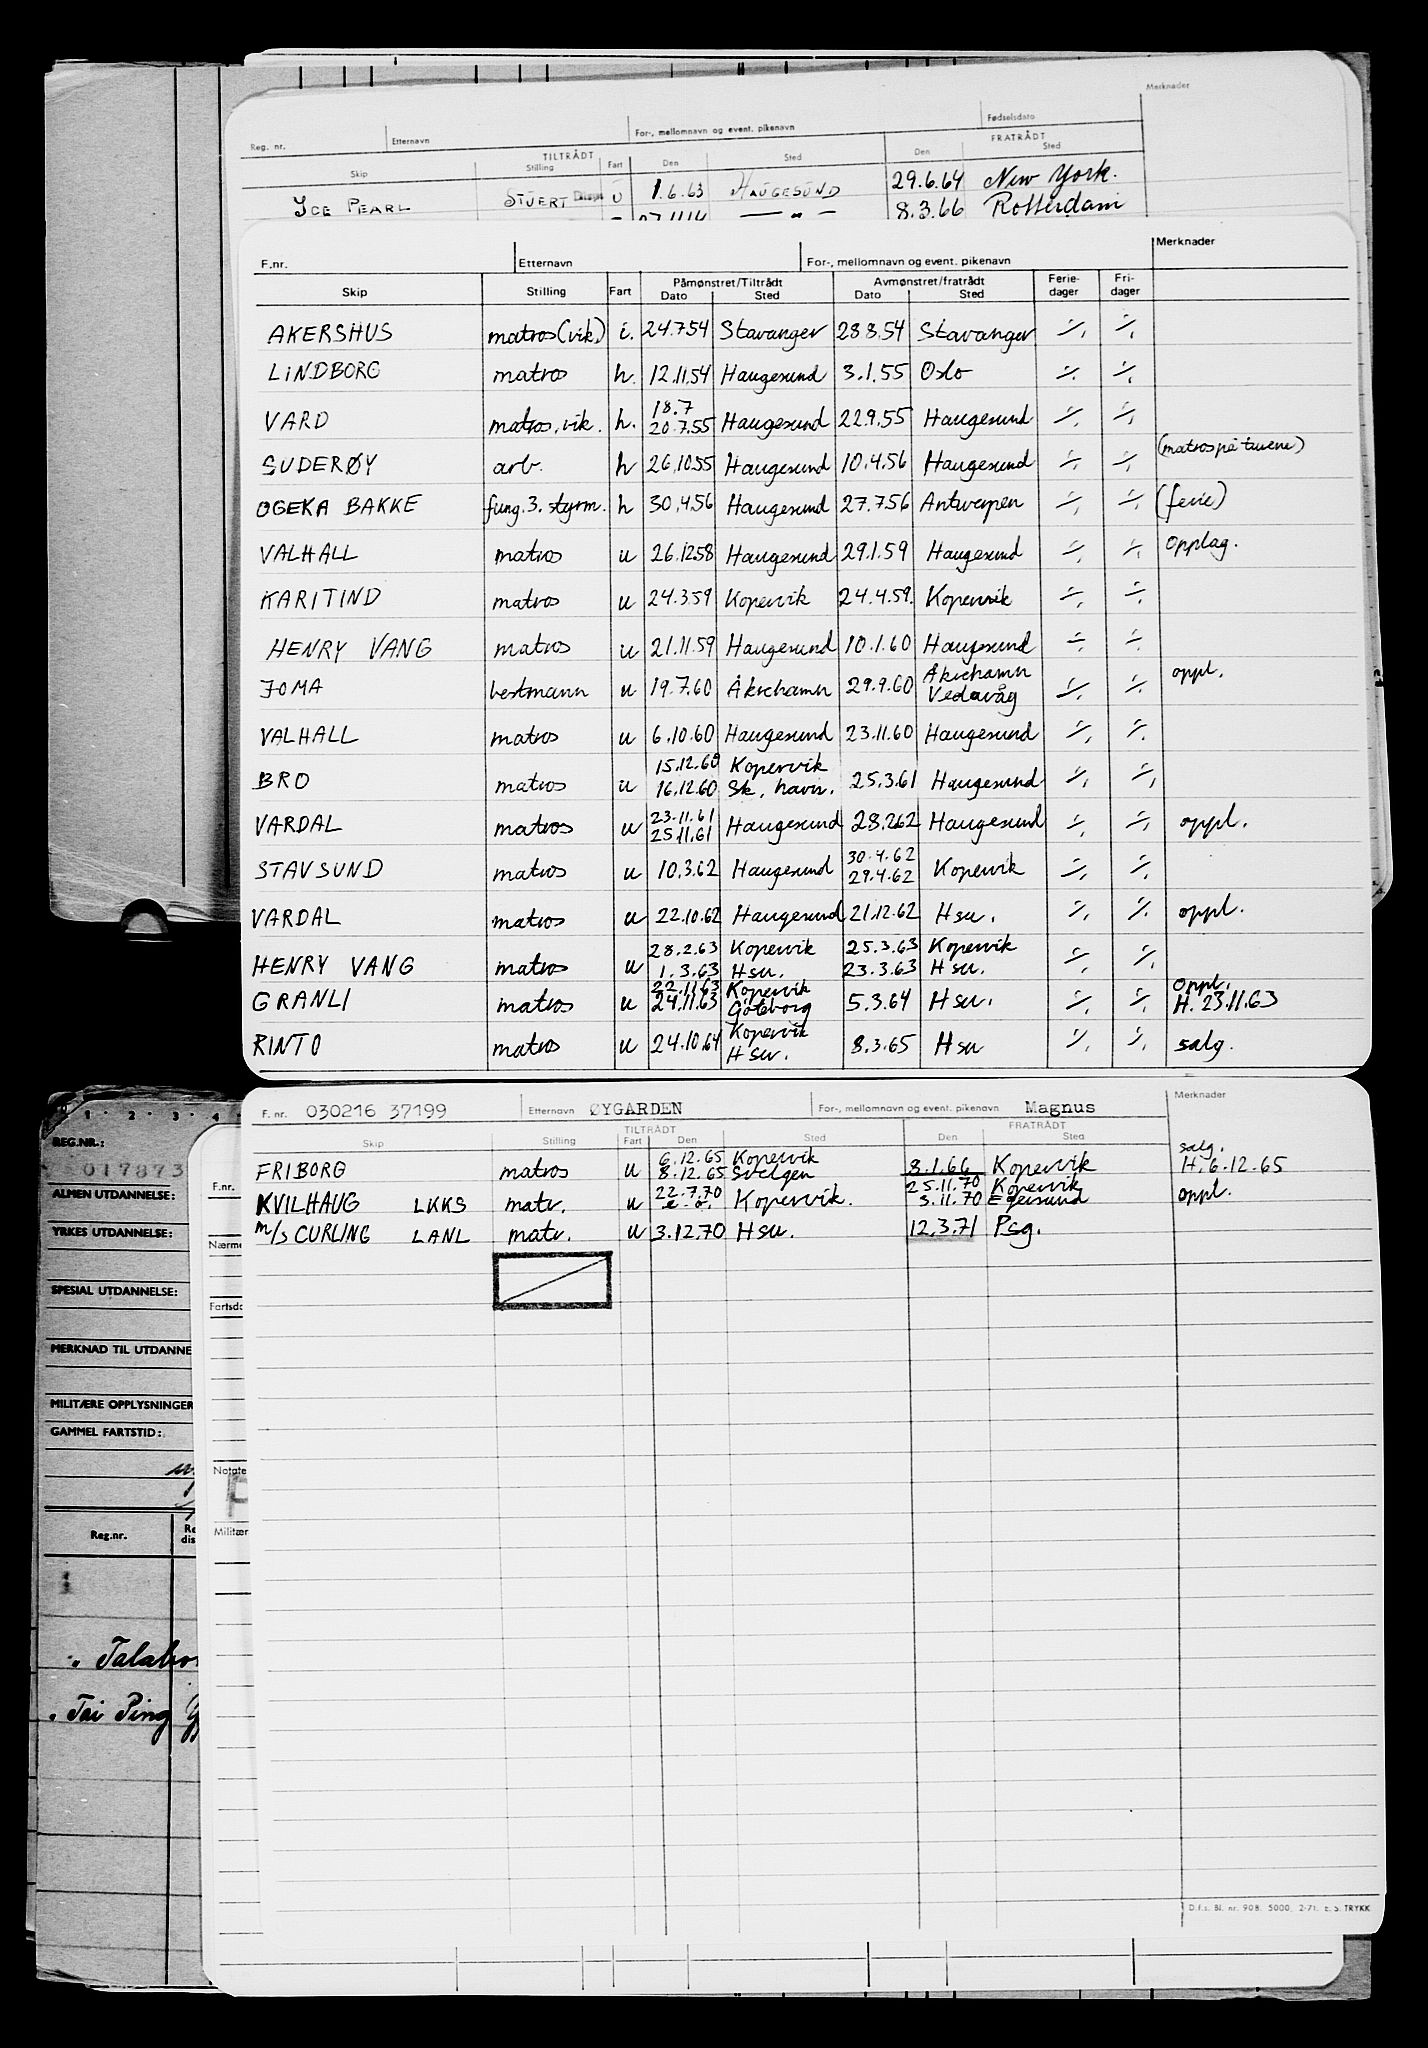 Merknader
Reg. nr. Etternavn For-, mellomnavn og event. pikenavn Fødselsdato
TILTRÅDT FRATRÅDT
Skip Stilling Fart Den Sted Den Sted
ICE PEARL STUERT U 1.6.63 HAUGESUND 29.6.64 New York.
— " — 8.3.66 Rotterdam
F.nr. Etternavn For-, mellomnavn og event. pikenavn Merknader
Skip Stilling Fart Påmønstret/Tiltrådt Avmønstret/fratrådt Ferie-dager Fri-dager
Dato Sted Dato Sted
AKERSHUS matros (vik.) i. 24.7.54 Stavanger 28.8.54 Stavanger -/. -/.
LINDBORG matros h. 12.11.54 Haugesund 3.1.55 Oslo -/. -/.
VARD matros, vik. h. 18.7 20.7.55 Haugesund 22.9.55 Haugesund -/. -/.
SUDERØY arb. h 26.10.55 Haugesund 10.4.56 Haugesund -/. -/. (matros på turene)
OGEKA BAKKE fung. 3. styrm. h 30.4.56 Haugesund 27.7.56 Antwerpen -/. -/. (ferie)
VALHALL matros u 26.12.58 Haugesund 29.1.59 Haugesund -/. -/. Opplag.
KARITIND matros u 24.3.59 Kopervik 24.4.59. Kopervik -/. -/.
HENRY VANG matros u 21.11.59 Haugesund 10.1.60 Haugesund -/. -/.
JOMA bestmann u 19.7.60 Åkrehamn 29.9.60 Åkrehamn Vedavåg -/. -/. oppl.
VALHALL matros u 6.10.60 Haugesund 23.11.60 Haugesund -/. -/.
BRO matros u 15.12.60 Kopervik 16.12.60 Sk. havn. 25.3.61 Haugesund -/. -/.
VARDAL matros u 23.11.61 25.11.61 Haugesund 28.2.62 Haugesund -/. -/. oppl.
STAVSUND matros u 10.3.62 Haugesund 30.4.62 29.4.62 Kopervik -/. -/.
VARDAL matros u 22.10.62 Haugesund 21.12.62 Hsu. -/. -/. oppl.
HENRY VANG matros u 28.2.63 Kopervik 1.3.63 Hsu. 25.3.63 Kopervik 23.3.63 Hsu. -/. -/.
GRANLI matros u 22.11.63 Kopervik 24.11.63 Göteborg 5.3.64 Hsu. -/. -/. Oppl. H. 23.11.63
RINTO matros u 24.10.64 Kopervik Hsu. 8.3.65 Hsu -/. -/. salg.
F. nr. 030216 37199 Etternavn ØYGARDEN For-, mellomnavn og event. pikenavn Magnus Merknader
TILTRÅDT FRATRÅDT
Skip Stilling Fart Den Sted Den Sted
FRIBORG matros u 6.12.65 Kopervik 8.12.65 Svelgen 8.1.66 Kopervik salg. H. 6.12.65
KVILHAUG LKKS matr. u 22.7.70 e.o. Kopervik. 25.11.70 Kopervik 3.11.70 Egersund oppl.
m/s CURLING LANL matr. u 3.12.70 Hsu. 12.3.71 Psg.
D.f.s. Bl. nr. 908. 5000. 2-71. E. S. TRYKK
1 2 3 4
REG.NR.:
017873
ALMEN UTDANNELSE:
YRKES UTDANNELSE:
SPESIAL UTDANNELSE:
MERKNAD TIL UTDANNE
MILITÆRE OPPLYSNINGER
GAMMEL FARTSTID:
Reg.nr.
Tai Ping
F.nr.
Nærme
Fartsdo
Notate
Militær